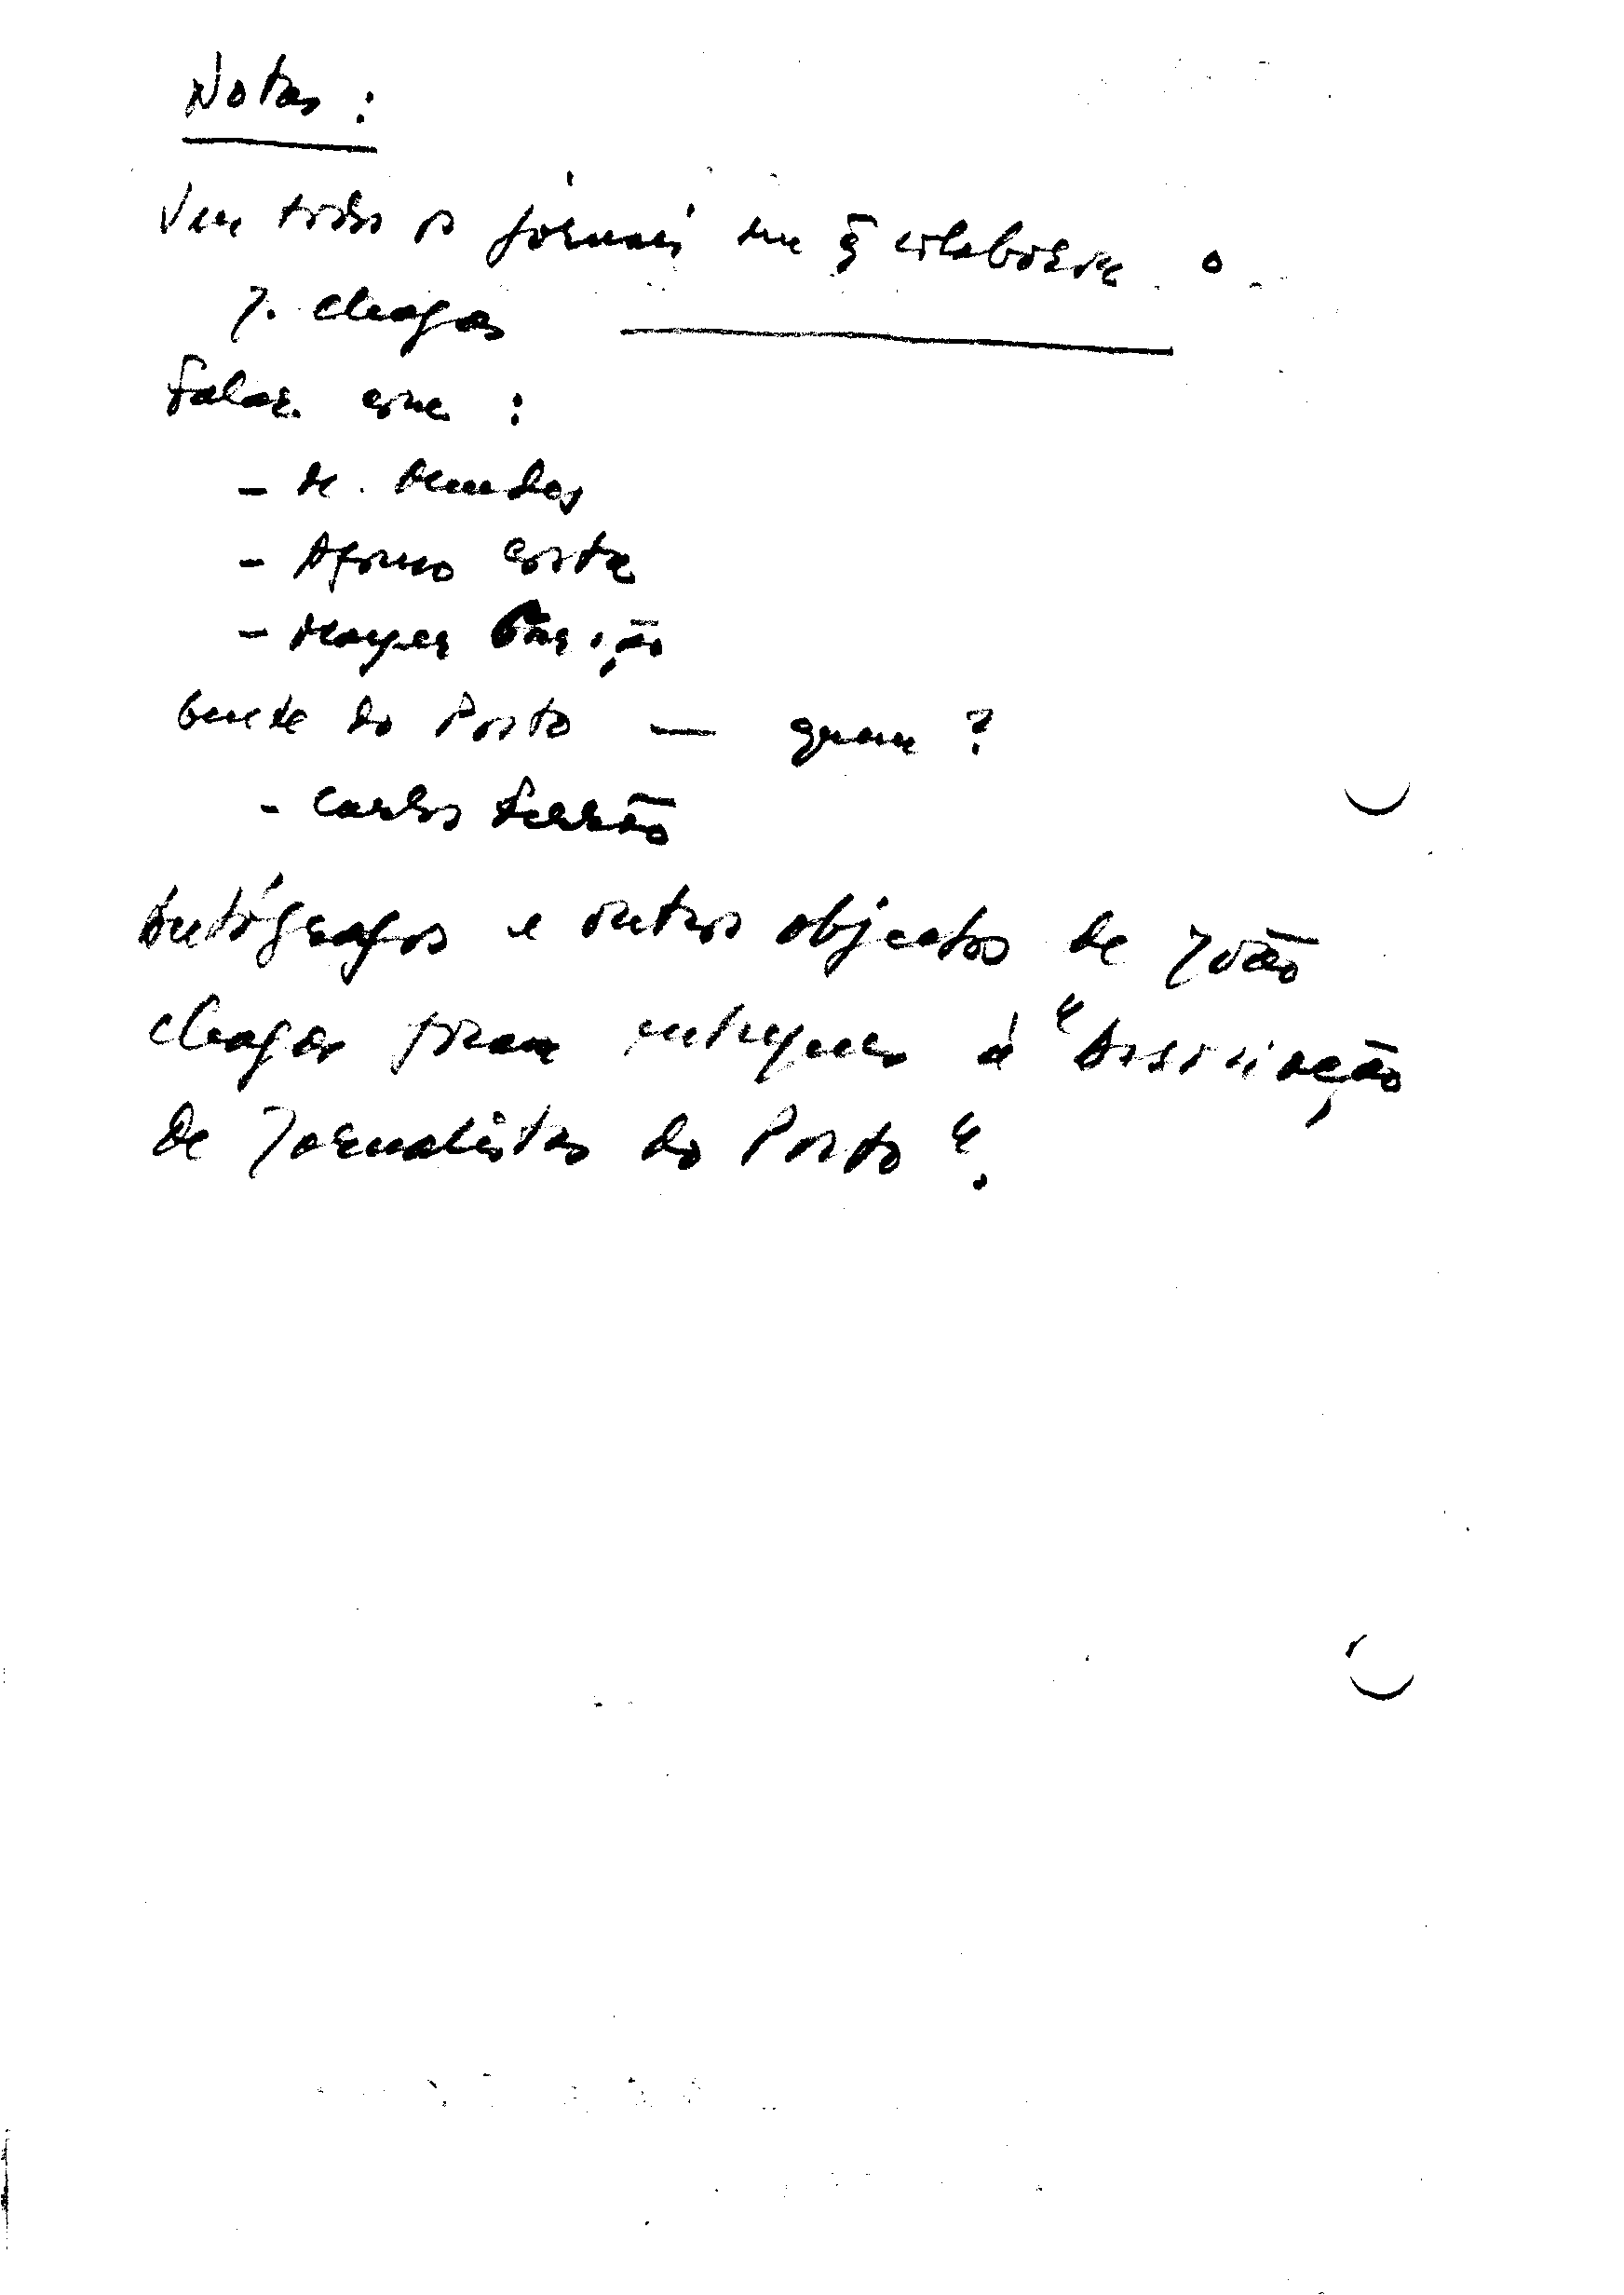 Notas :
Ver todos os jornais em q̃ colaborou o
J. Chagas
Falar com :
- M. Mendes
- Afonso Costa
- Mayer Garção
Gente do Porto — quem ?
- Carlos Ferrão
Autógrafos e outros objectos de João
Chagas foram entregues à "Associação
de Jornalistas do Porto".